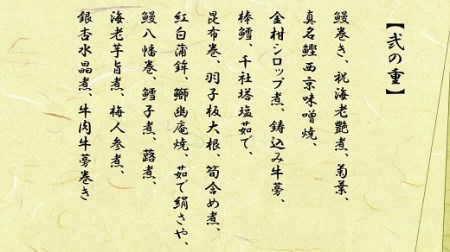 【弐の重】
鰻巻き、祝海老艶煮、菊葉、
真名鰹西京味噌焼、
金柑シロップ煮、鋳込み牛蒡、
棒鱈、千社塔塩茹で、
昆布巻、羽子板大根、筍含め煮、
紅白蒲鉾、鰤幽庵焼、茹で絹さや、
鰻八幡巻、鱈子煮、蕗煮、
海老芋旨煮、梅人参煮、
銀杏水晶煮、牛肉牛蒡巻き